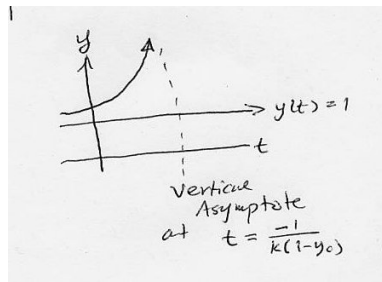 y
y(t) = 1
t
Vertical
Asymptote
at t = -1/k(1-y₀)